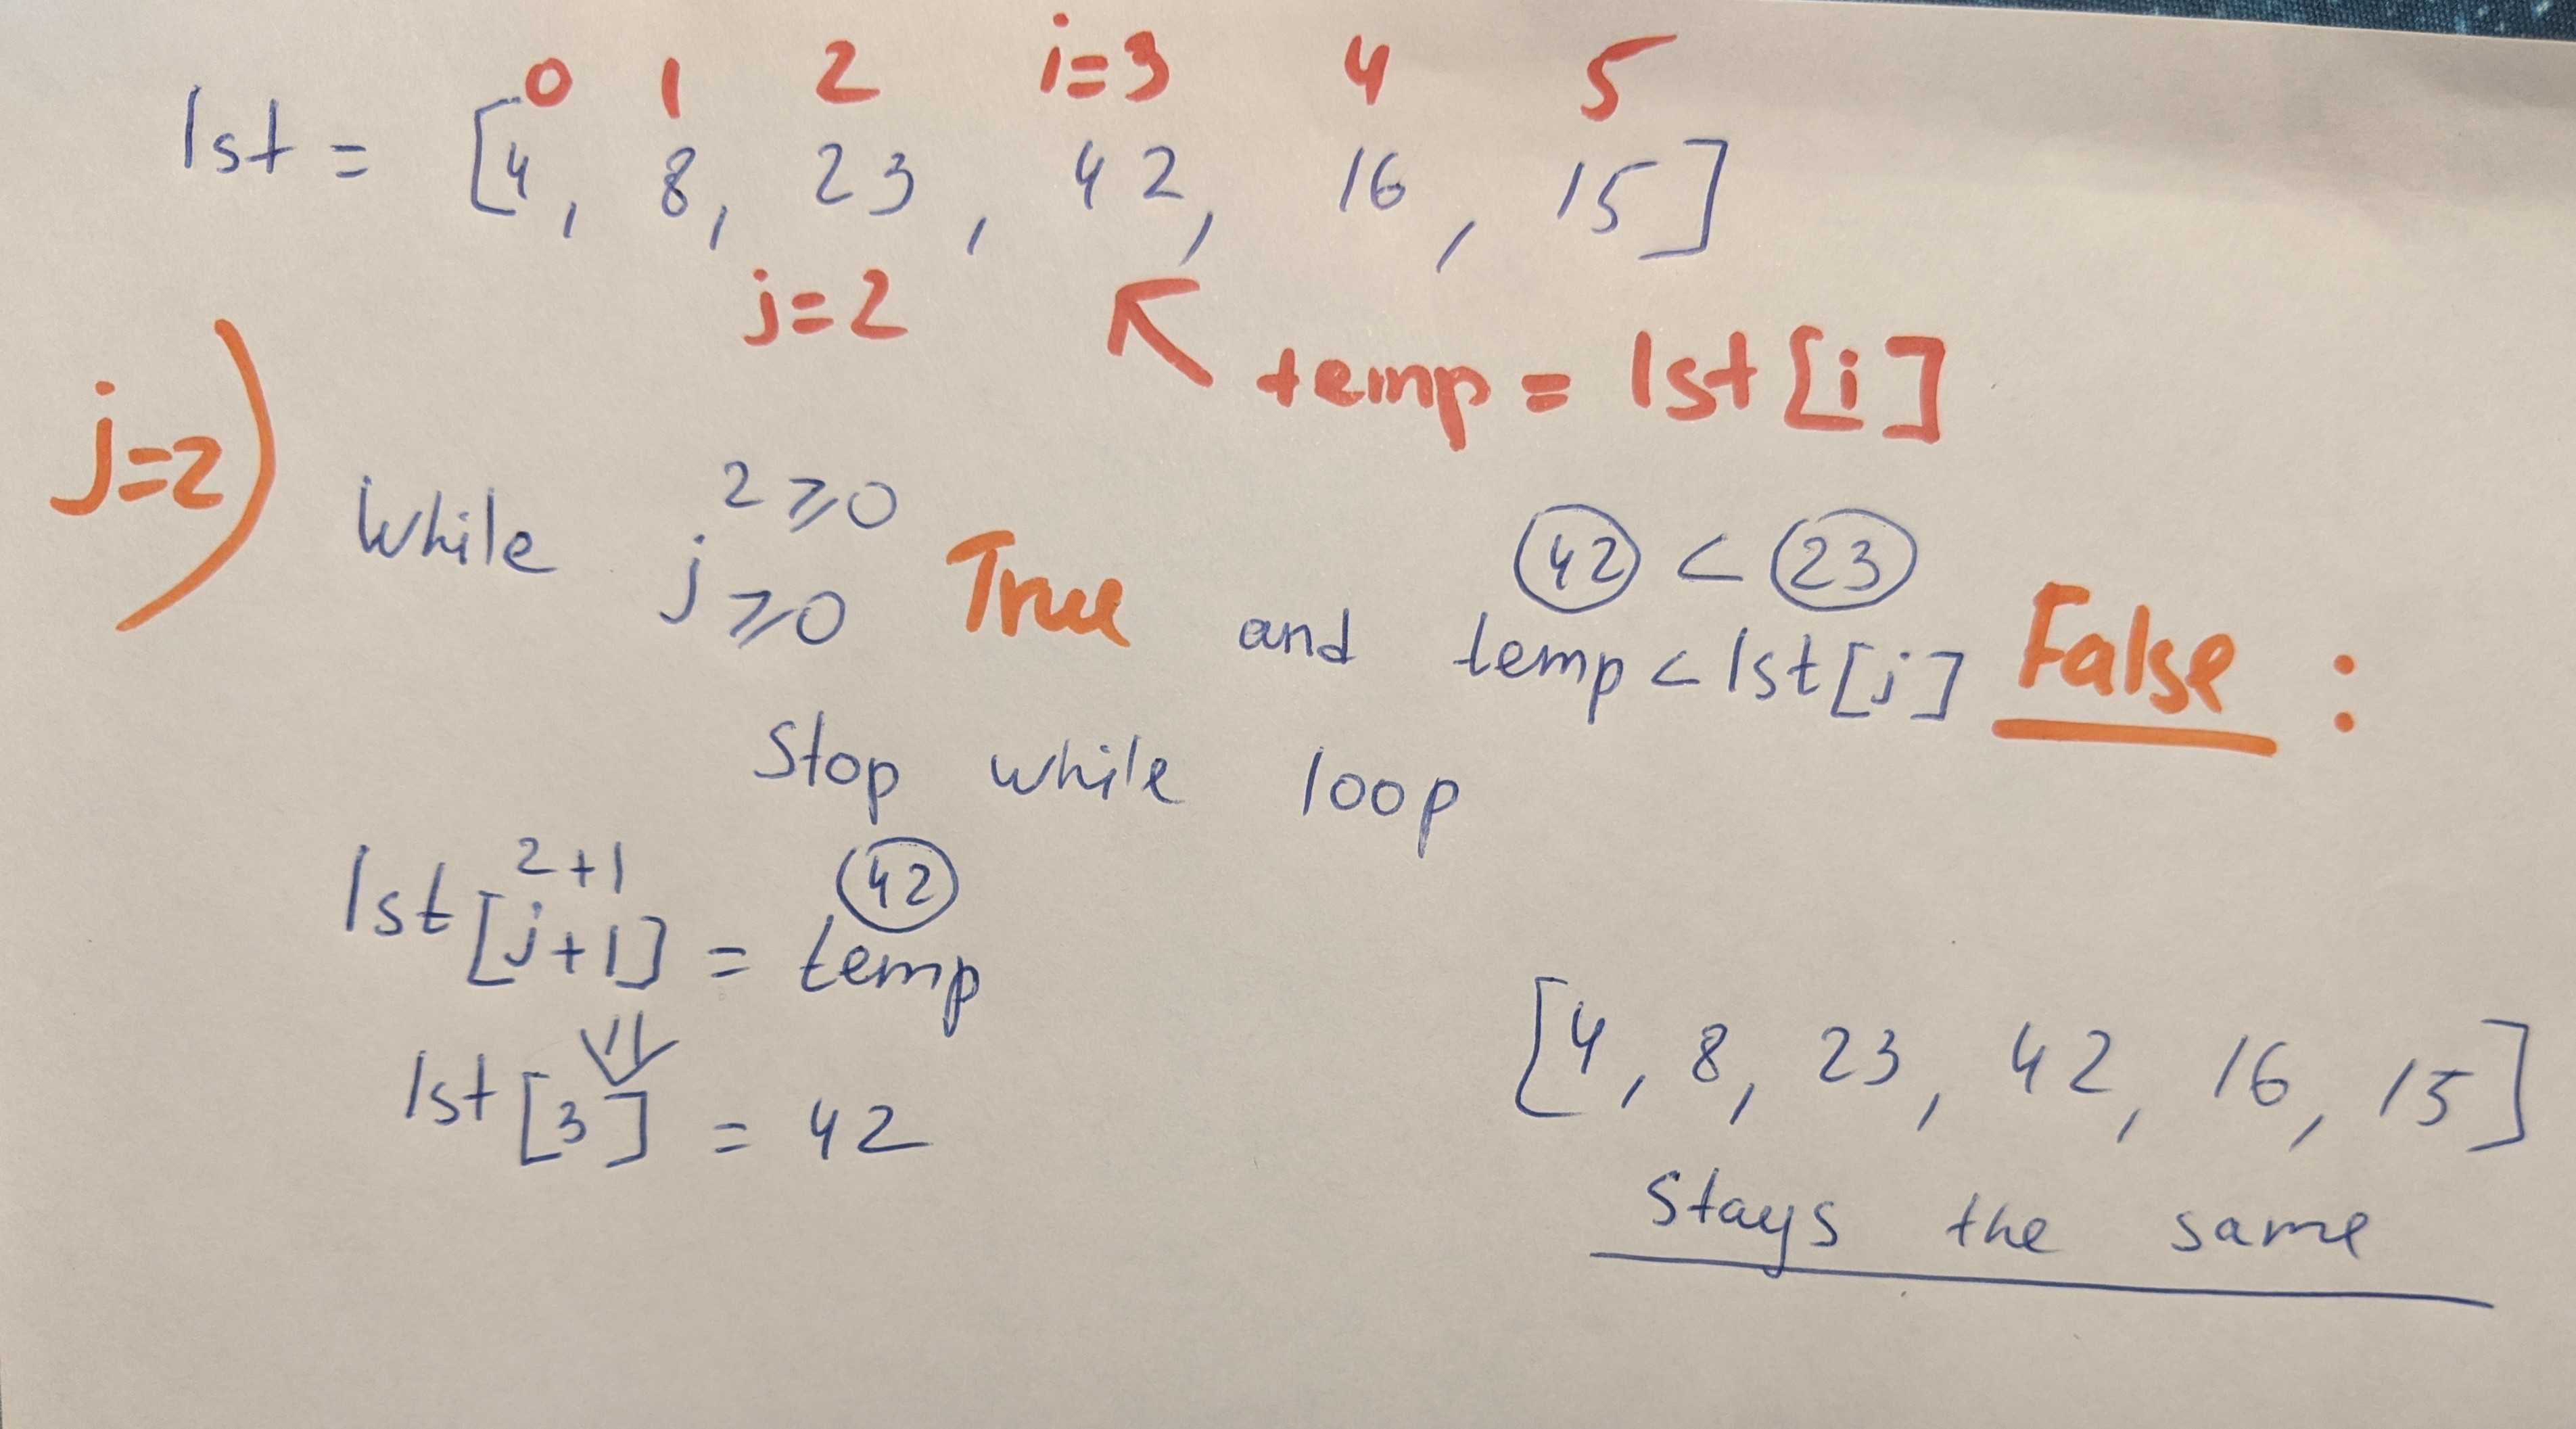 0 1 2 i=3 4 5
lst = [4, 8, 23, 42, 16, 15]
j=2 ↖ temp = lst[i]
j=2)
2⩾0 42 < 23
While j⩾0 True and temp < lst[j] False :
Stop while loop
2+1 42
lst[j+1] = temp
⇓
lst[3] = 42
[4, 8, 23, 42, 16, 15]
Stays the same